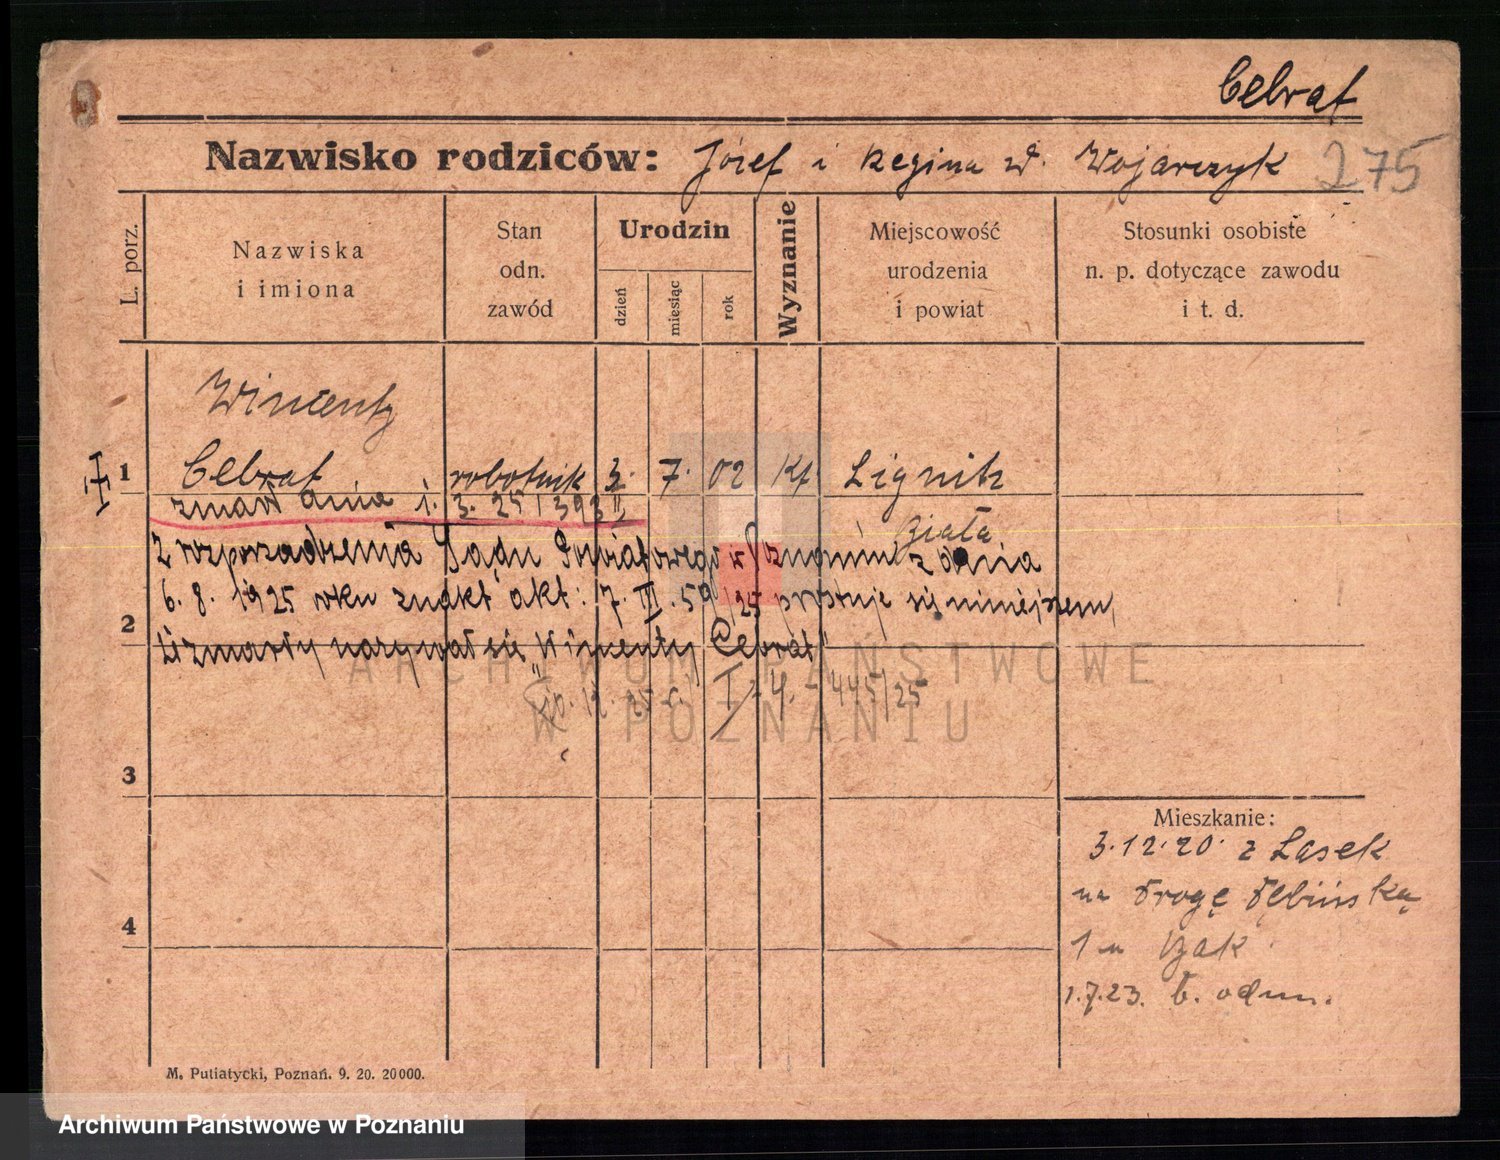 Cebrat
Nazwisko rodziców: Józef i Regina d. Wojarczyk 275
L. porz.
Nazwiska
i imiona
Stan
odn.
zawód
Urodzin
dzień
miesiąc
rok
Wyznanie
Miejscowość
urodzenia
i powiat
Stosunki osobiste
n. p. dotyczące zawodu
i t. d.
Wincenty
1 Cebrat robotnik 3. 7. 02 Kt. Lignitz
zmarł dnia 1. 3. 25 1393 II
Biała
z rozporządzenia Sądu Powiatowego w Poznaniu z dnia
6. 8. 1925 roku znakt akt: 7. III. 59/25 prostuje się niniejszem,
2
iż zmarły nazywał się „Wincenty Cebrat"
12. 25 r. I/4. - 445/25
3
4
Mieszkanie:
3.12.20. z Lasek
na drogę Dębińską
1 u Bzak
1.7.23. b. odm.
M. Putiatycki, Poznań. 9. 20. 20000.
ARCHIWUM PAŃSTWOWE
W POZNANIU
Archiwum Państwowe w Poznaniu